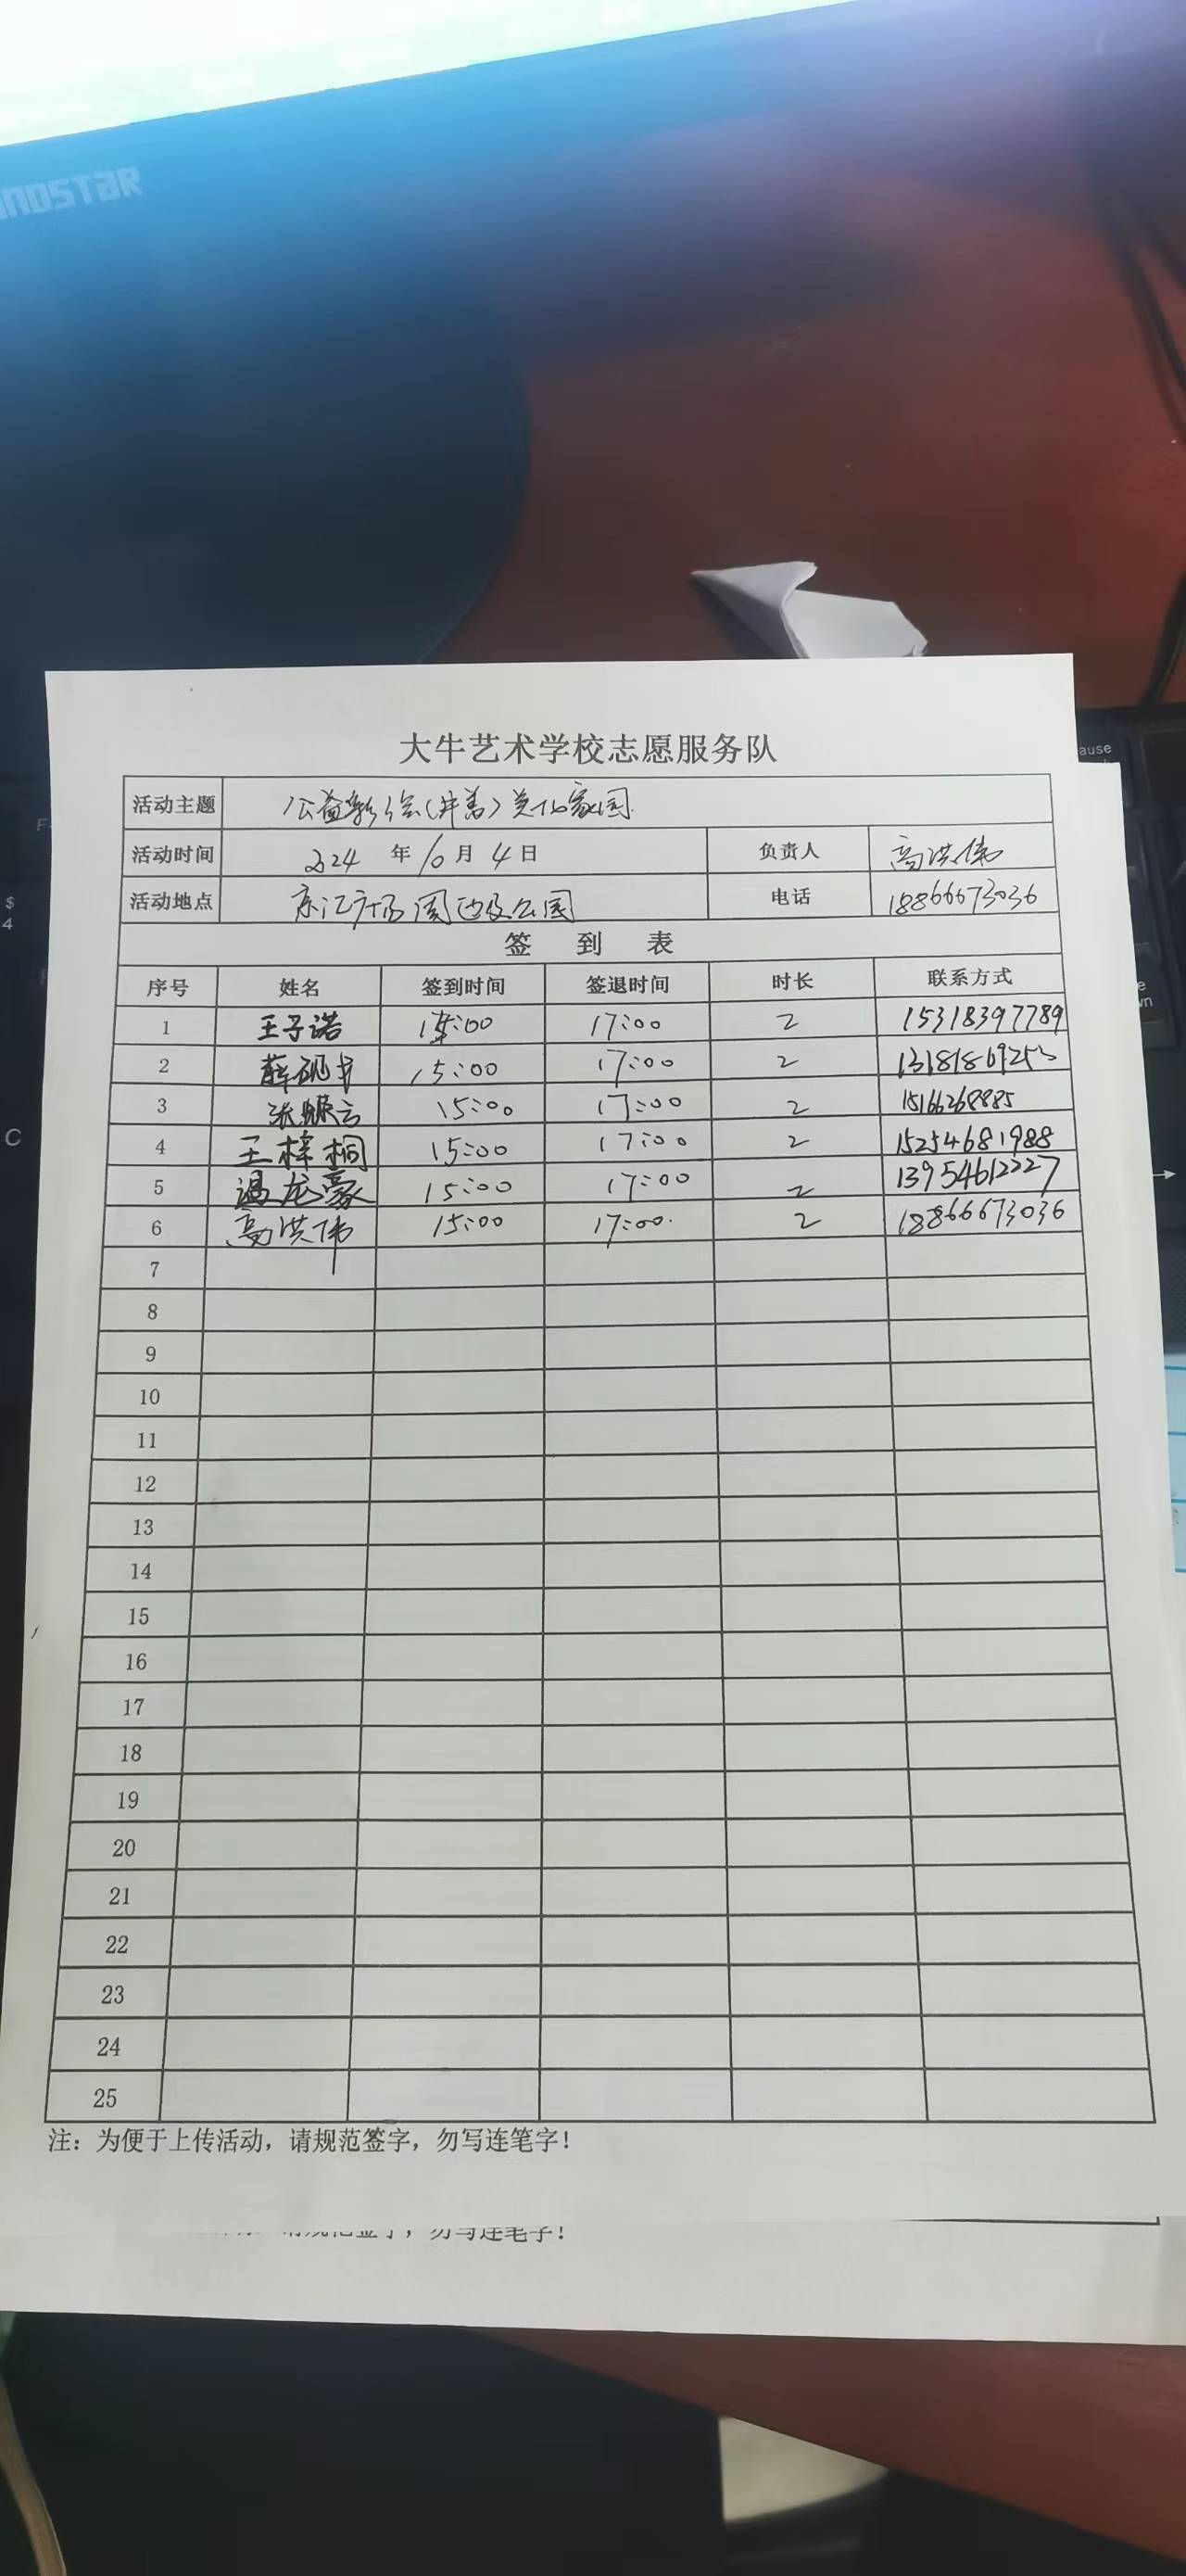 NDSTAR
ause
$
4
C
大牛艺术学校志愿服务队
活动主题 公益彩绘(井盖)美化家园
活动时间 2024 年 10 月 4 日 负责人 高洪伟
活动地点 东江广场周边及公园 电话 18866673036
签 到 表
序号 姓名 签到时间 签退时间 时长 联系方式
1 王子诺 15:00 17:00 2 15318397789
2 薛砚书 15:00 17:00 2
3 15:00 17:00 2 15166268885
4 王梓桐 15:00 17:00 2 15254681988
5 温龙豪 15:00 17:00 2 13954612227
6 高洪伟 15:00 17:00 2 18866673036
7
8
9
10
11
12
13
14
15
16
17
18
19
20
21
22
23
24
25
注：为便于上传活动，请规范签字，勿写连笔字！
请规范签字，勿写连笔字！